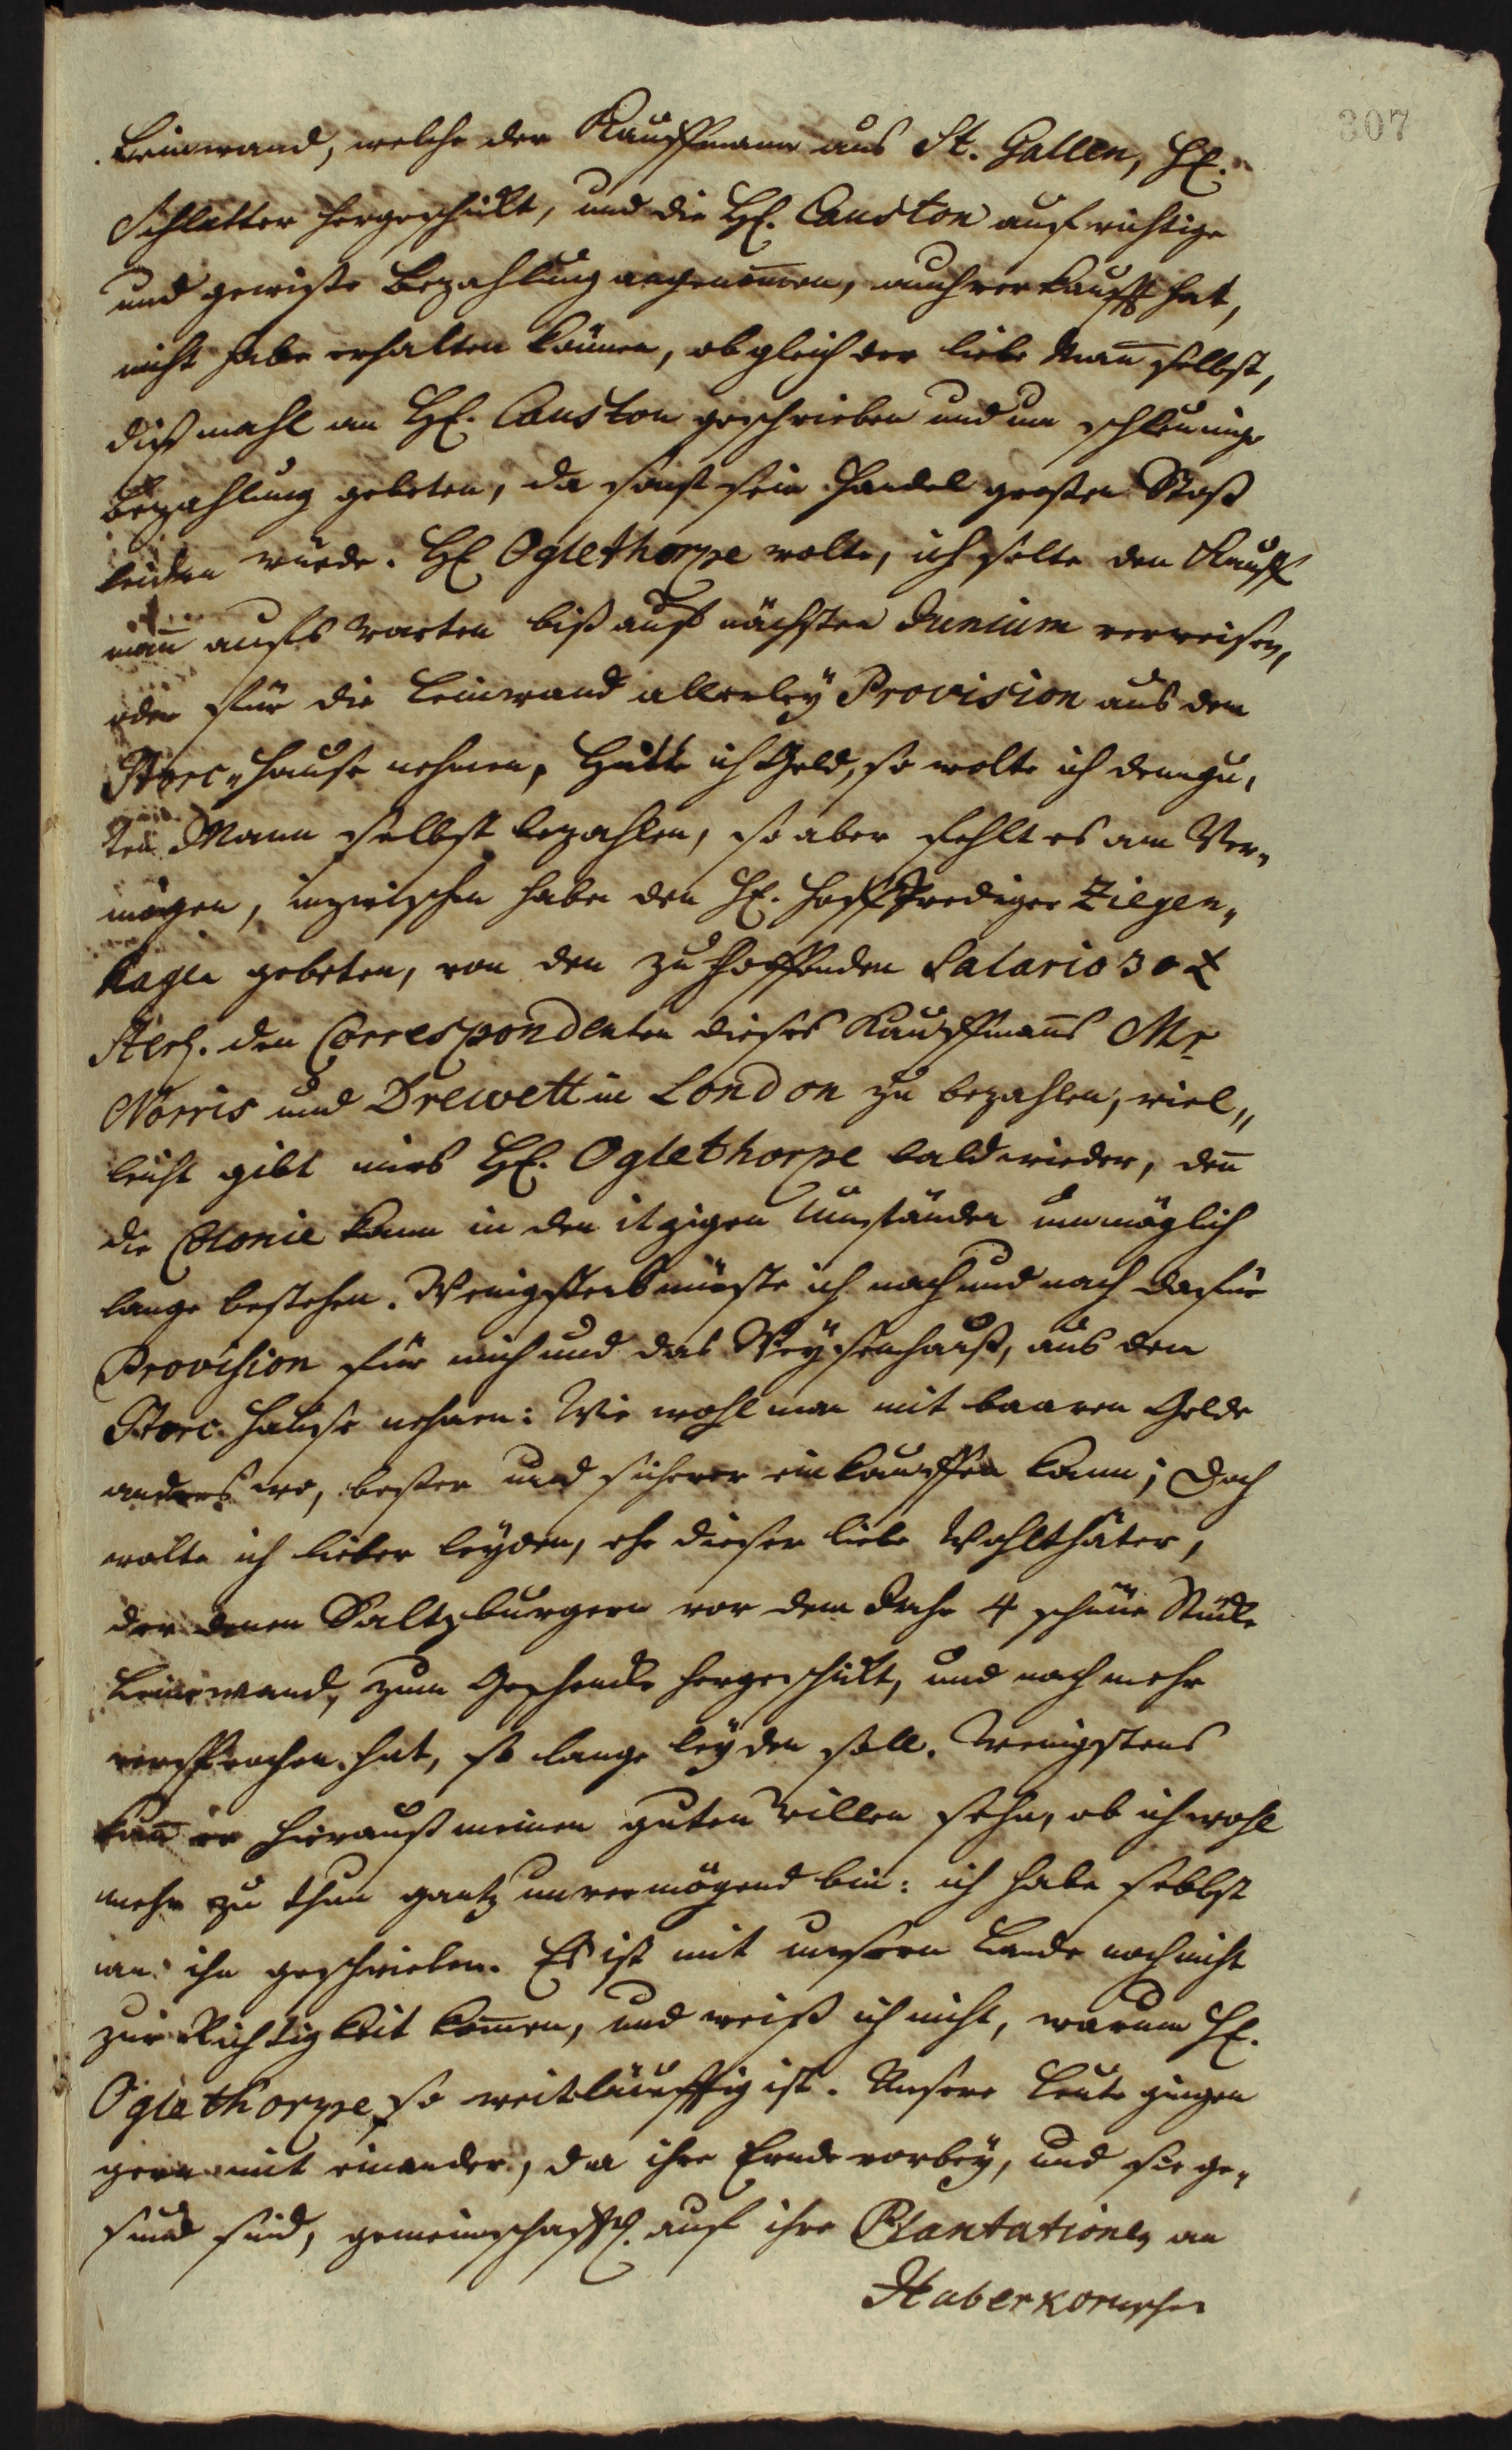 307
Leinwand, welche der Kauffmann aus St. Gallen, H.
Schlatter hergeschickt, und die H. Causton auf richtige
und gewiße Bezahlung angenom̄en, auch verkaufft hat,
nicht habe erhalten können, ob gleich der liebe Man̄ selbst,
dißmahl an H. Causton geschrieben und um schleunige
Bezahlung gebeten, da sonst sein Handel großen Stoß
leiden würde. H Oglethorpe wolte, ich solte den Kauff
man̄ aufs warten biß auf nächsten Junium verweisen,
oder für die Leinwand allerley Provision aus dem
Store„Hause nehmen, Hätte ich Geld, so wolte ich dem gu„
ten Mann selbst bezahlen, so aber fehlt es am Ver„
mögen, inzwischen habe den H. HoffPrediger Ziegen„
hagen gebeten, von den zu hoffenden Salario 30 £
Sterl. den Correspondenten dieses Kauffman̄s Mr
Norris und Drewett in London zu bezahlen, viel„
leicht gibt mirs H. Oglethorpe bald wieder, den̄
die Colonie kann in den itzigen Umständen unmöglich
lange bestehen. Wenigstens müste ich nach und nach dafür
Provision für mich und das Waysenhauß, aus dem
Store-Hause nehmen: Wie wohl man mit baaren Gelde
anders wo, beßer und sicherer einkauffen kann; Doch
wolte ich lieber leyden, ehe dieser liebe Wohlthäter,
der denen Saltzburgern vor dem Jahr 4 schöne Stücke
Leinewand, zum Geschencke hergeschickt, und noch mehr
versprochen hat, so lange leyden soll. Wenigstens
kan̄ er hierauß meinen guten Willen sehn, ob ich wohl
mehr zu thun gantz unvermögend bin: ich habe selbst
an ihn geschrieben. Es ist mit unsern Lande noch nicht
zur Richtigkeit kom̄en, und weiß ich nicht, warum H.
Oglethorpe so weitläufftig ist. Unsere Leute gingen
gern mit einander, da ihre Ernde vorbey, und sie ge„
sund sind, gemeinschafftl. auf ihre Plantationen an
Haberkornsche